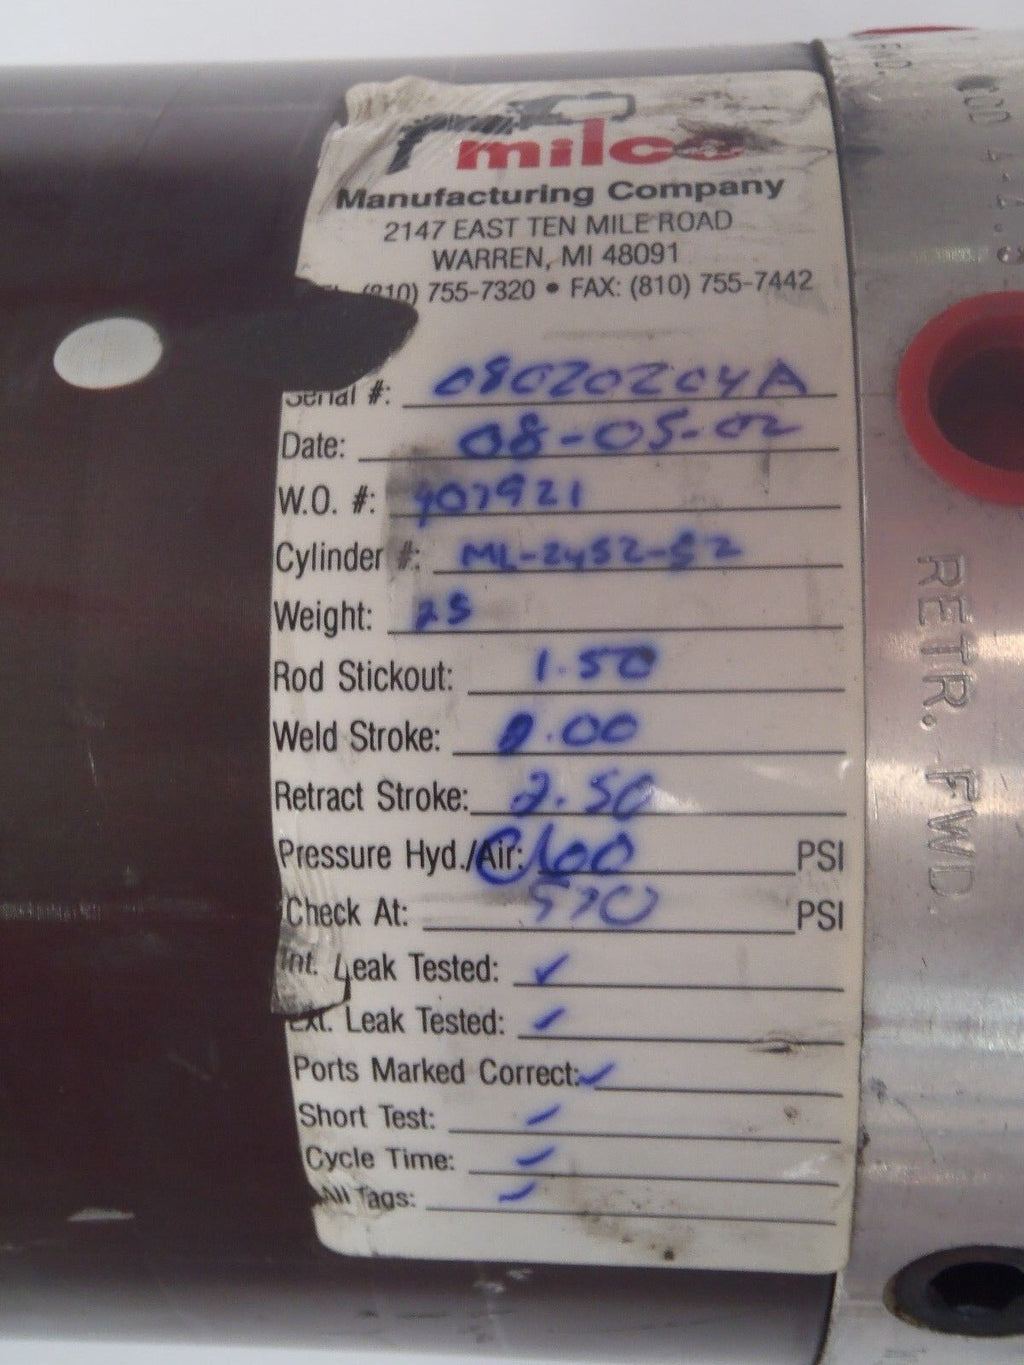 milco
Manufacturing Company
2147 EAST TEN MILE ROAD
WARREN, MI 48091
(810) 755-7320 • FAX: (810) 755-7442
Serial #: 08020204A
Date: 08-05-02
W.O. #: 907921
Cylinder #: ML-2452-52
Weight: 25
Rod Stickout: 1.50
Weld Stroke: 2.00
Retract Stroke: 2.50
Pressure Hyd./Air: 100 PSI
Check At: 570 PSI
Int. Leak Tested: ✓
Ext. Leak Tested: ✓
Ports Marked Correct: ✓
Short Test: ✓
Cycle Time: ✓
All Tags: ✓
RETR. FWD.